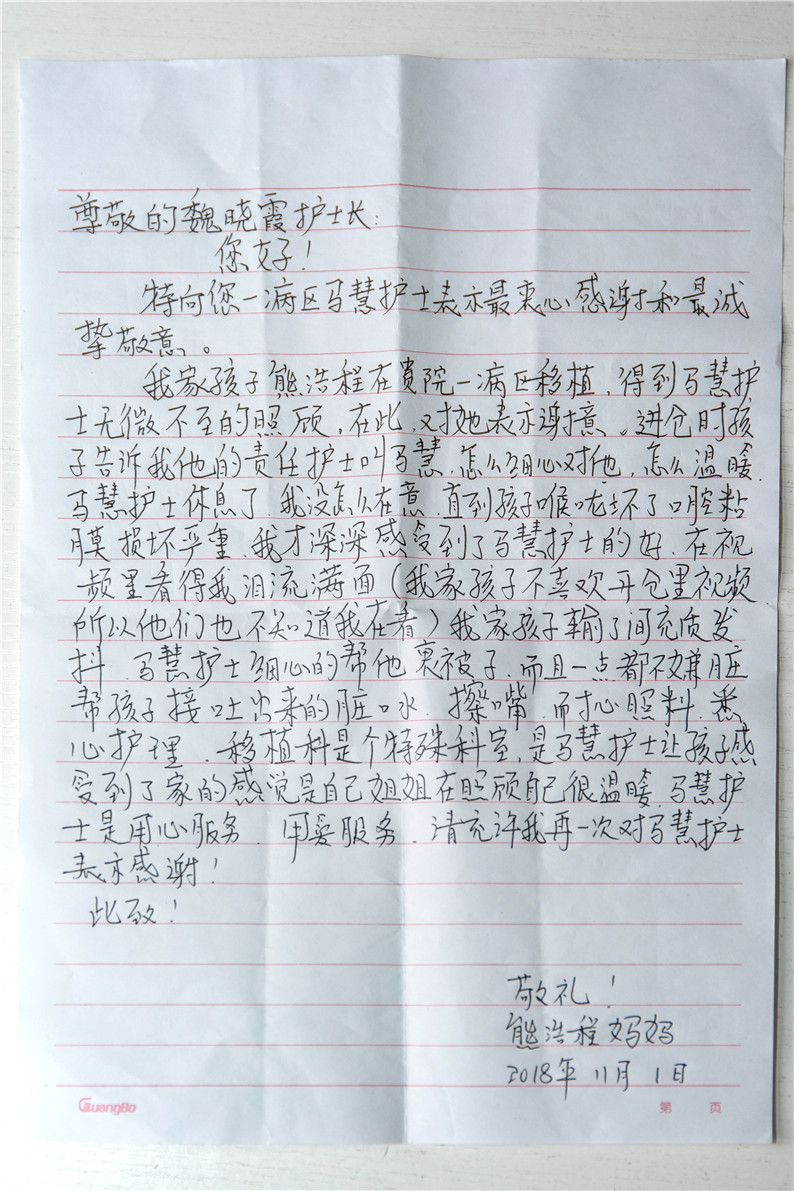 尊敬的魏晓霞护士长:
您好!
特向您一病区马慧护士表示最衷心感谢和最诚
挚敬意。
我家孩子熊浩程在贵院一病区移植,得到马慧护
士无微不至的照顾,在此,对她表示谢意。进仓时孩
子告诉我他的责任护士叫马慧,怎么细心对他,怎么温暖.
马慧护士休息了.我没怎么在意.直到孩子喉咙坏了口腔粘
膜损坏严重.我才深深感受到了马慧护士的好.在视
频里看得我泪流满面(我家孩子不喜欢开仓里视频
所以他们也不知道我在看)我家孩子输了间充质发
抖.马慧护士细心的帮他裹被子.而且一点都不嫌脏
帮孩子接吐出来的脏口水.擦嘴.耐心照料.悉
心护理.移植科是个特殊科室,是马慧护士让孩子感
受到了家的感觉是自己姐姐在照顾自己很温暖.马慧护
士是用心服务.用爱服务.请允许我再一次对马慧护士
表示感谢!
此致!
敬礼!
熊浩程妈妈
2018年11月1日
GuangBo
第 页